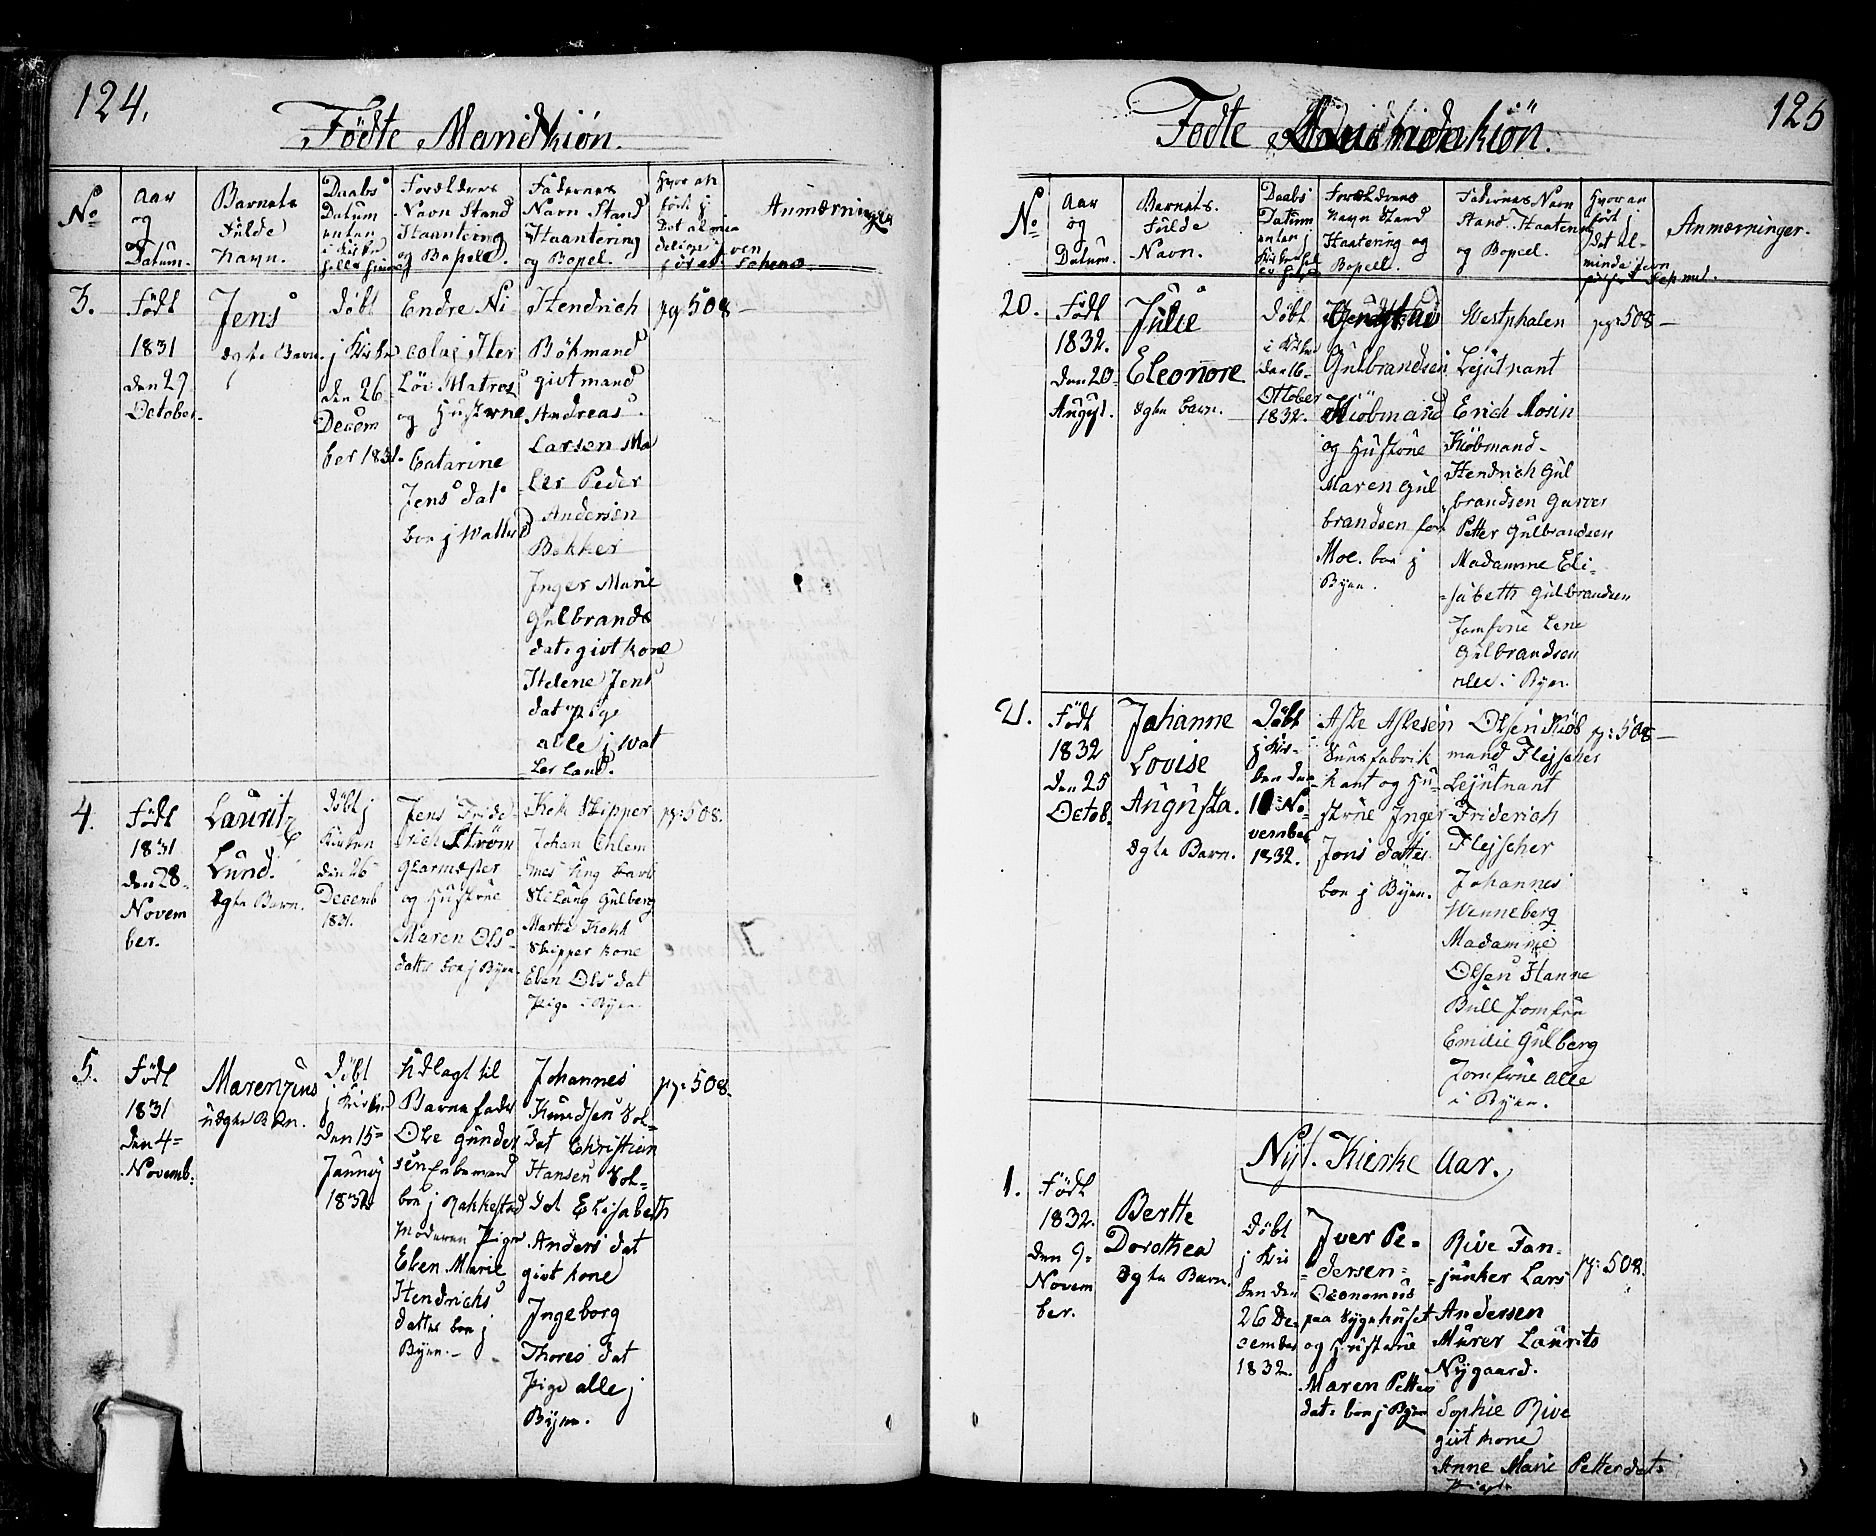 124.
Födte Mandkiön.
No
Aar
og
Datum.
Barnets
Fulde
Navn.
Daabs
Datum
enten
i Kirken
Forældrenes
Navn Stand
Haantering
og Bopel.
Fadernes
Navn Stand
Haantering
og Bopel.
Hvor an
fört j
Det almin
Anmærninger
3.
Födt
1831
den 29
October.
Jens
Ægte Barn.
Döbt
j Kirken
den 26
Decem
ber 1831.
Endre Ni
colai Her
Löv Matros
og Hustrue
Catarine
Jens dat
boe j Walle
Hendrich
Bökmand
givt mand
Andreas
Larsen Ma
ler Peder
Andersen
Bekker
Inger Marie
Gulbrands
dat. givt kone
Helene Jens
dat Pige
alle j Wal
ler Land.
pg 508 —
4.
Födt
1831
den 28
Novem
ber.
Lauritz
Lund.
Ægte Barn.
Döbt j
Kirken
den 26
Decemb
1831.
Jens Fride
rich Ström
Glarmester
og Hustrue
Maren Ols
datter boe j Byen
Kok Skipper
Johan Chlem
Gulberg
Marthe Kokk
Skipper kone
Elen Ols dat
Pige i Byen
pg: 508.
5.
Födt
1831
den 4=
Novemb:
Marenius
uægte Barn.
Döbt
j Kirken
den 15=
Januarj
1832
Udlagt til
Barnefader
Ole Gunder
sen Enkemand
boe j Rakkestad
Moderen Pigen
Elen Marie
Hendrichs
datter boe j
Byen. —
Johannes
Knudsen Sol=
dat Christian
Hansen Sol=
dat Elisabeth
Anders dat
givt kone
Ingeborg
Thores dat
Pige alle j
Byen.
pg: 508.
125
Födte Quindekiön.
No
Aar
og
Datum.
Barnets
Fulde
Navn.
Daabs
Datum
enten j
Forældrenes
Navn Stand
Haatering og
Bopell.
Fadernes Navn
Stand Haatering
og Bopeel.
Hvor an
fört j
det al=
minde
Anmærninger.
20.
Födt
1832.
den 20
August.
Julie
Eleonore
Ægte barn.
Döbt
i Kirken
den 16=
October
1832.
Gulbrandsen
Kiöbmand
og Hustrue
Maren Gul
brandsen föd
Moe. boe j
Byen.
Westphalen
Lejutnant
Erich Mosin
Kiöbmand
Hendrich Gul
brandsen Garver
Petter Gulbrandsen
Madamme Eli=
=sabeth Gulbrandsen
Jomfrue Lene
Gulbrandsen
alle i Byen.
pg: 508 —
21.
Födt
1832
den 25
Octob.
Johanne
Lovise
Augusta.
Ægte Barn.
Döbt
j Kir=
ken den
No
vember
1832.
Aste Aslesen
fabrik
kant og Hu=
strue Inger
Jons datter
boe j Byen.
Olsen Kiöb
mand Flejscher
Lejutnant
Friderich
Flejscher
Johannes
Wenneberg
Madamme
Olsen Hanne
Bull Jomfru
Emilie Gulberg
Jomfrue alle
i Byen.
pg: 508 —
Nyt. Kierke Aar.
1.
Födt
1832.
den 9=
Novem
ber.
Berthe
Dorothea
Ægte Barn.
Döbt
j Kir
ken den
26 De=
cember
1832.
Iver Pe=
dersen=
Oeconomus
paa Sygehuset
og Hustrue
Maren Petter
dat. boe j Byen
Rive Fan=
=junker Lars
Andersen
Murer Laurits
Nygaard.
Sophie Rive
givt kone
Anne Marie Petterdat:
Pige
pg: 508.